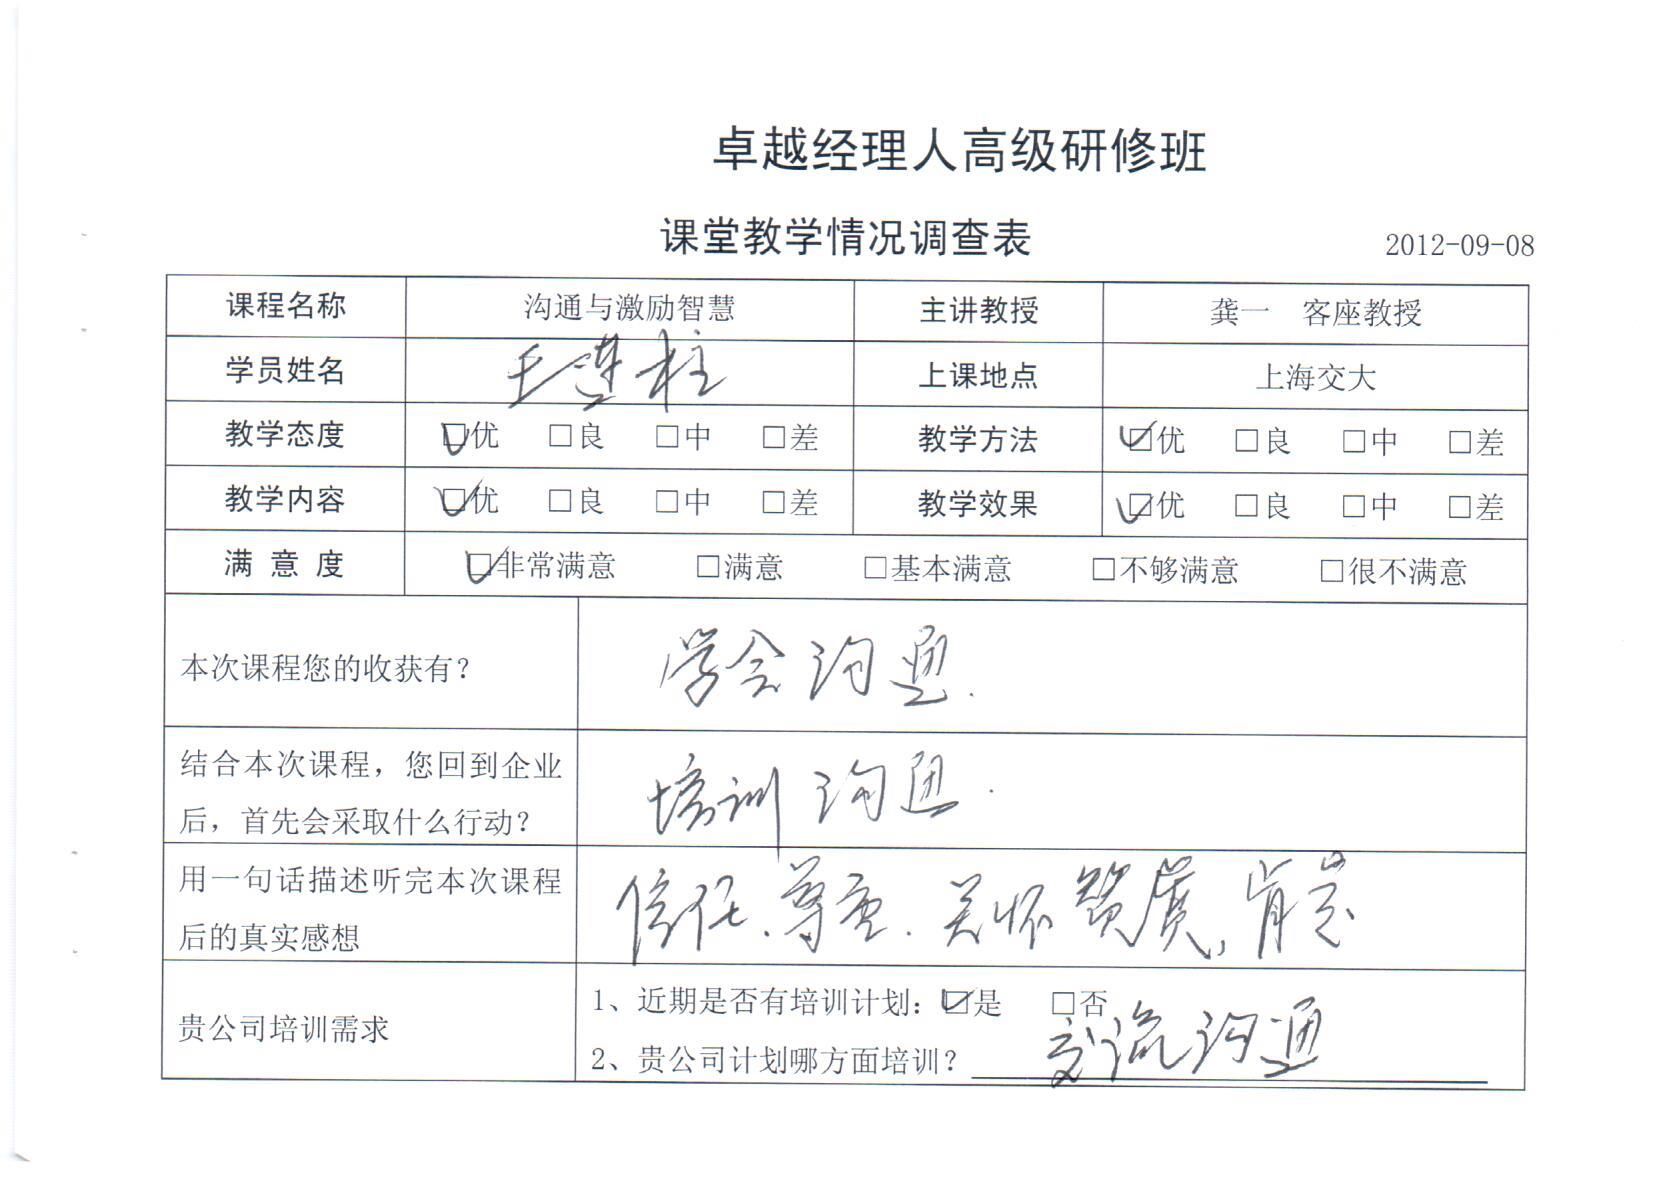 卓越经理人高级研修班
课堂教学情况调查表
2012-09-08
课程名称 沟通与激励智慧 主讲教授 龚一 客座教授
学员姓名 王连柱 上课地点 上海交大
教学态度 ☑优 □良 □中 □差 教学方法 ☑优 □良 □中 □差
教学内容 ☑优 □良 □中 □差 教学效果 ☑优 □良 □中 □差
满意度 ☑非常满意 □满意 □基本满意 □不够满意 □很不满意
本次课程您的收获有？ 学会沟通.
结合本次课程，您回到企业
后，首先会采取什么行动？
培训沟通.
用一句话描述听完本次课程
后的真实感想
信任、尊重、关怀 赞赏、肯定
贵公司培训需求
1、近期是否有培训计划：☑是 □否
2、贵公司计划哪方面培训？ 交流沟通